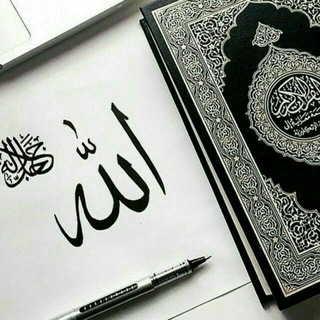 الله
جل جلاله
القرآن الكريم